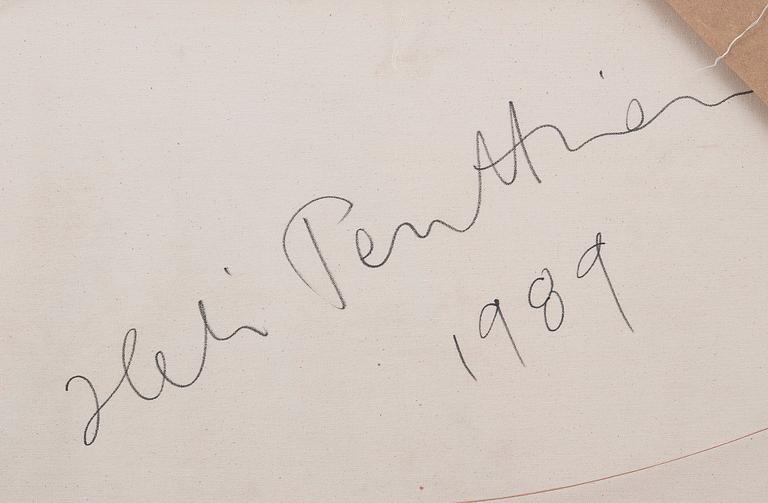 Heli Penttinen
1989